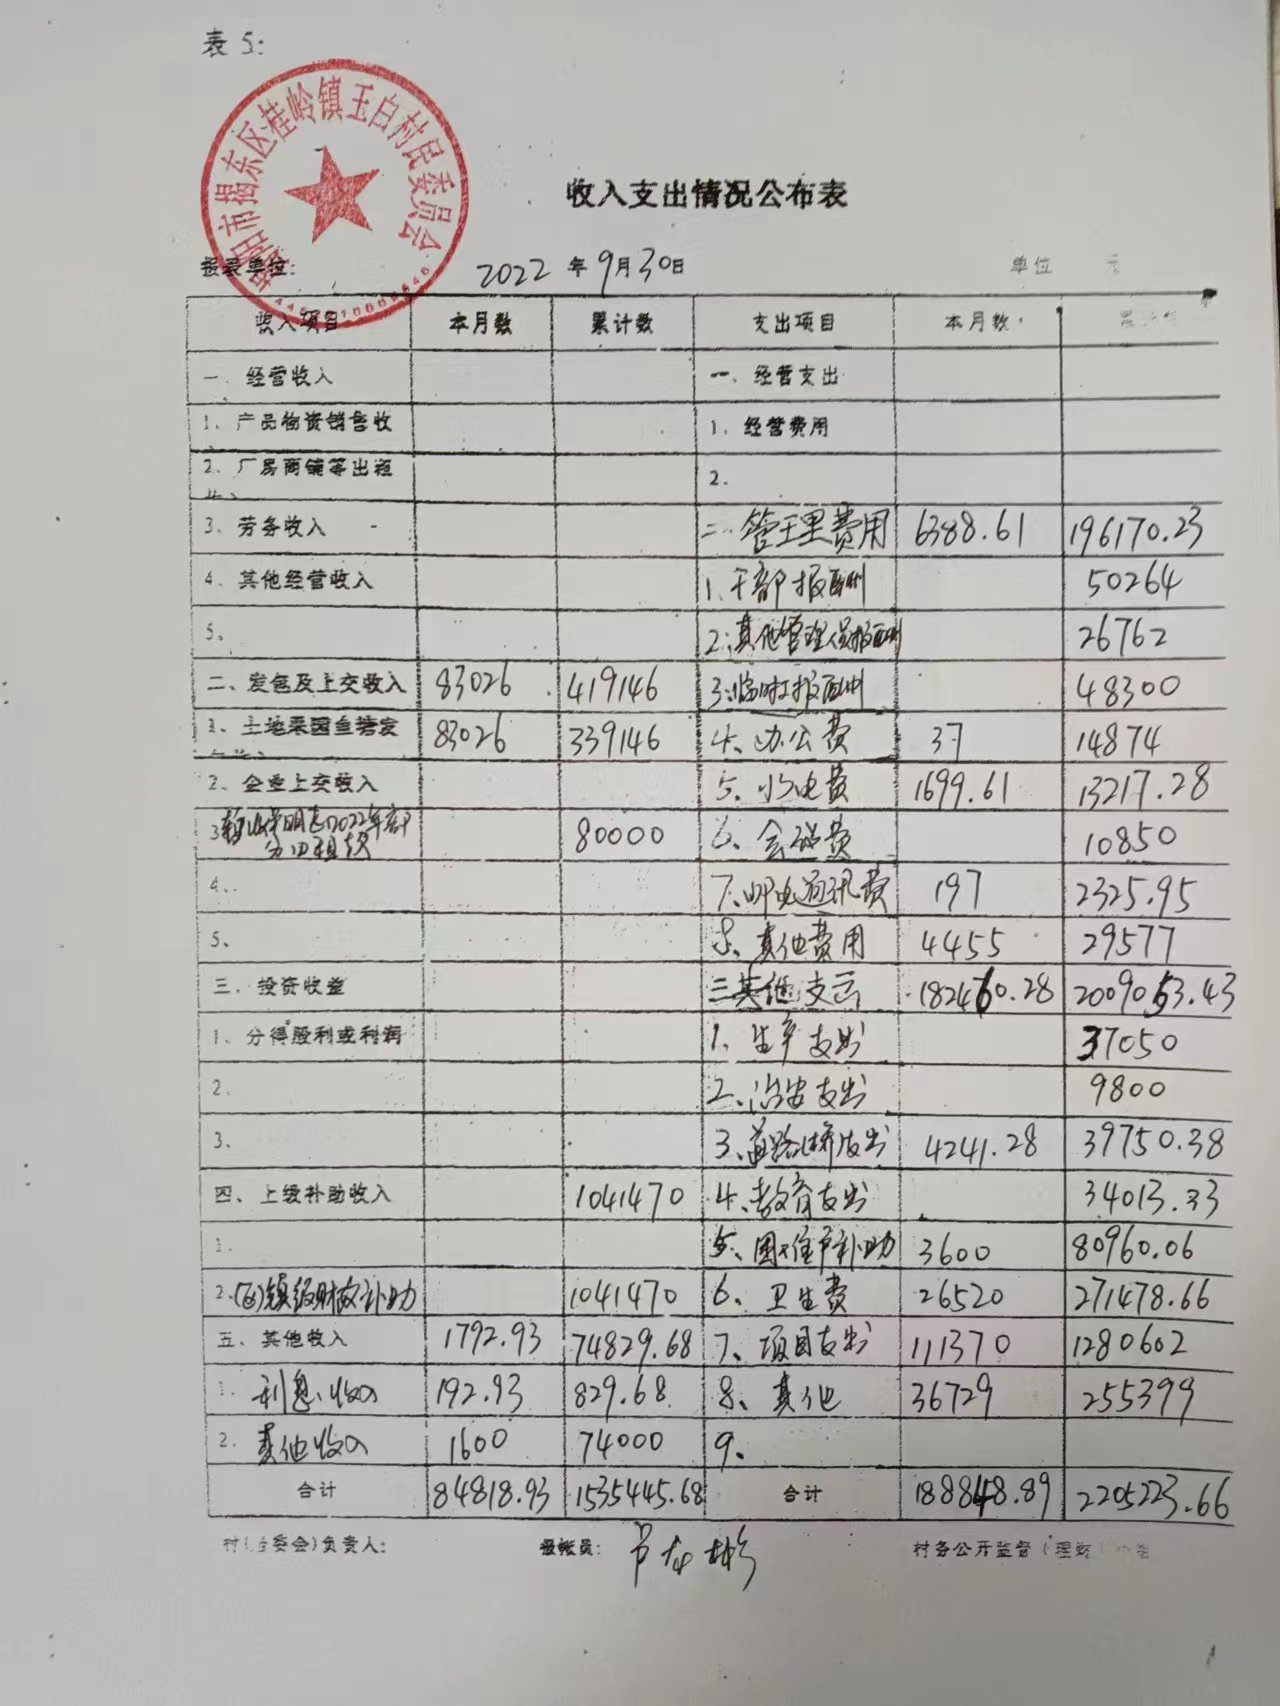 表 5:
揭阳市揭东区桂岭镇玉白村民委员会
收入支出情况公布表
报表单位: 2022 年 9月30日 单位 元
收入项目 本月数 累计数 支出项目 本月数
一、经营收入 一、经营支出
1、产品物资销售收 1、经营费用
2、厂房商铺等出租 2.
3、劳务收入 二 管理费用 6388.61 196170.23
4、其他经营收入 1、干部报酬 50264
5。 2、其他管理人员报酬 26762
二、发包及上交收入 83026 419146 3、临时工报酬 48300
1、土地果园鱼塘发 83026 339146 4、办公费 37 14874
2、企业上交收入 5、水电费 1699.61 13217.28
3 2022年部 80000 6、会议费 10850
分田租款
4、 7、邮电通讯费 197 2325.95
5、 8、其他费用 4455 29577
三、投资收益 三其他支出 182460.28 2009053.43
1、分得股利或利润 1、生产支出 37050
2、 2、治安支出 9800
3、 3、道路桥支出 4241.28 39750.38
四、上级补助收入 1041470 4、教育支出 34013.33
1. 5、困难户补助 3600 80960.06
2.(区)镇级财政补助 1041470 6、卫生费 26520 271478.66
五、其他收入 1792.93 74829.68 7、项目支出 111370 1280602
1. 利息收入 192.93 829.68 8、其他 36729 255399
2. 其他收入 1600 74000 9、
合计 84818.93 1535445.68 合计 188848.89 2205223.66
村(居委会)负责人: 报帐员: 村务公开监督(理财)